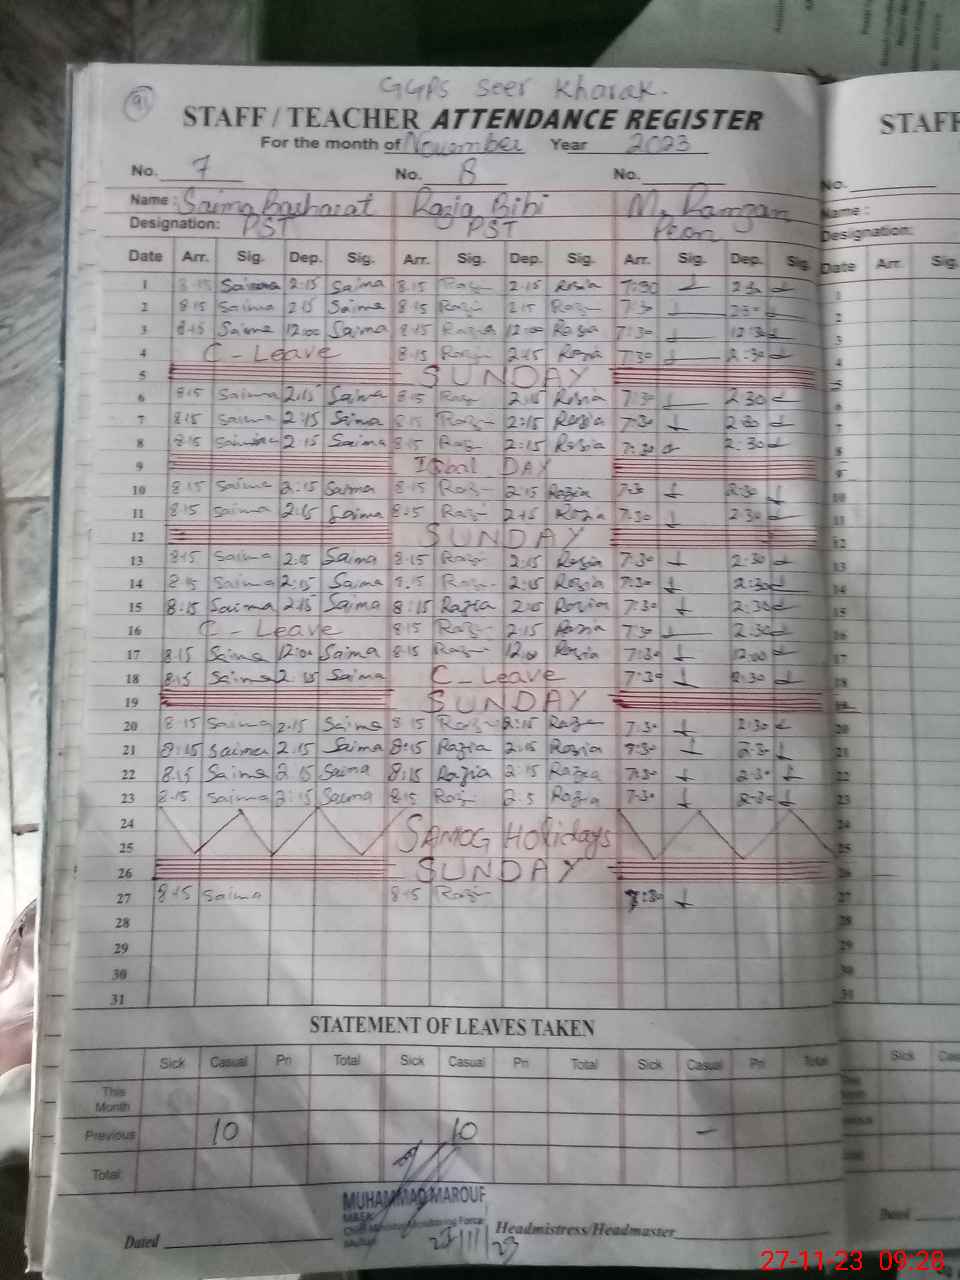 GGPS Seer Kharak.
91
STAFF / TEACHER ATTENDANCE REGISTER
For the month of November Year 2023
No. 7 No. 8 No.
Name : Saima Basharat Razia Bibi M, Ramzan
Designation: PST PST Peon
Date Arr. Sig. Dep. Sig. Arr. Sig. Dep. Sig. Arr. Sig. Dep. Sig.
1 8-15 Saima 2-15 Saima 8-15 Razi 2-15 Razia 7:30 2 30
2 8-15 Saima 2 15 Saima 8-15 Razi 2 15 Razi 7:30 2 30
3 8-15 Saima 12:00 Saima 8-15 Razia 12:00 Razia 7:30 12:30
4 C - Leave 8-15 Razi 2-15 Razia 7:30 2:30
5 SUNDAY
6 8-15 Saima 2:15 Saima 8-15 Razi 2:15 Razia 7:30 2 30
7 8-15 Saima 2:15 Saima 8-15 Razi 2:15 Razia 7:30 2 30
8 8-15 Saima 2-15 Saima 8-15 Razi 2:15 Razia 7:30 2:30
9 Iqbal DAY
10 8-15 Saima 2:15 Saima 8-15 Razi 2-15 Razia 7:30 2:30
11 8-15 Saima 2:15 Saima 8-15 Razi 2-15 Razia 7:30 2 30
12 SUNDAY
13 8-15 Saima 2:15 Saima 8-15 Razi 2:15 Razia 7:30 2:30
14 8-15 Saima 2:15 Saima 8-15 Razi 2:15 Razia 7:30 2:30
15 8:15 Saima 2:15 Saima 8:15 Razia 2:15 Razia 7:30 2:30
16 C - Leave 8-15 Razi 2:15 Razia 7:30 2:30
17 8-15 Saima 12:00 Saima 8-15 Razi 12:00 Razia 7:30 12:00
18 8-15 Saima 2:15 Saima C - Leave 7:30 2:30
19 SUNDAY
20 8-15 Saima 2-15 Saima 8-15 Razi 2:15 Razia 7:30 2:30
21 8:15 Saima 2:15 Saima 8:15 Razia 2:15 Razia 7:30 2:30
22 8:15 Saima 2:15 Saima 8:15 Razia 2-15 Razia 7:30 2:30
23 8-15 Saima 2:15 Saima 8-15 Razi 2-5 Razia 7:30 2:30
24
SAMOG Holidays
25
26 SUNDAY
27 8-15 Saima 8-15 Razi 7:30
28
29
30
31
STATEMENT OF LEAVES TAKEN
Sick Casual Pri Total Sick Casual Pri Total Sick Casual Pri Total
This
Month
Previous 10 10 -
Total
MUHAMMAD MAROUF
27/11/23
Dated Headmistress/Headmaster
STAFF
No.
Name :
Designation:
Date Arr. Sig.
27-11-23 09:28